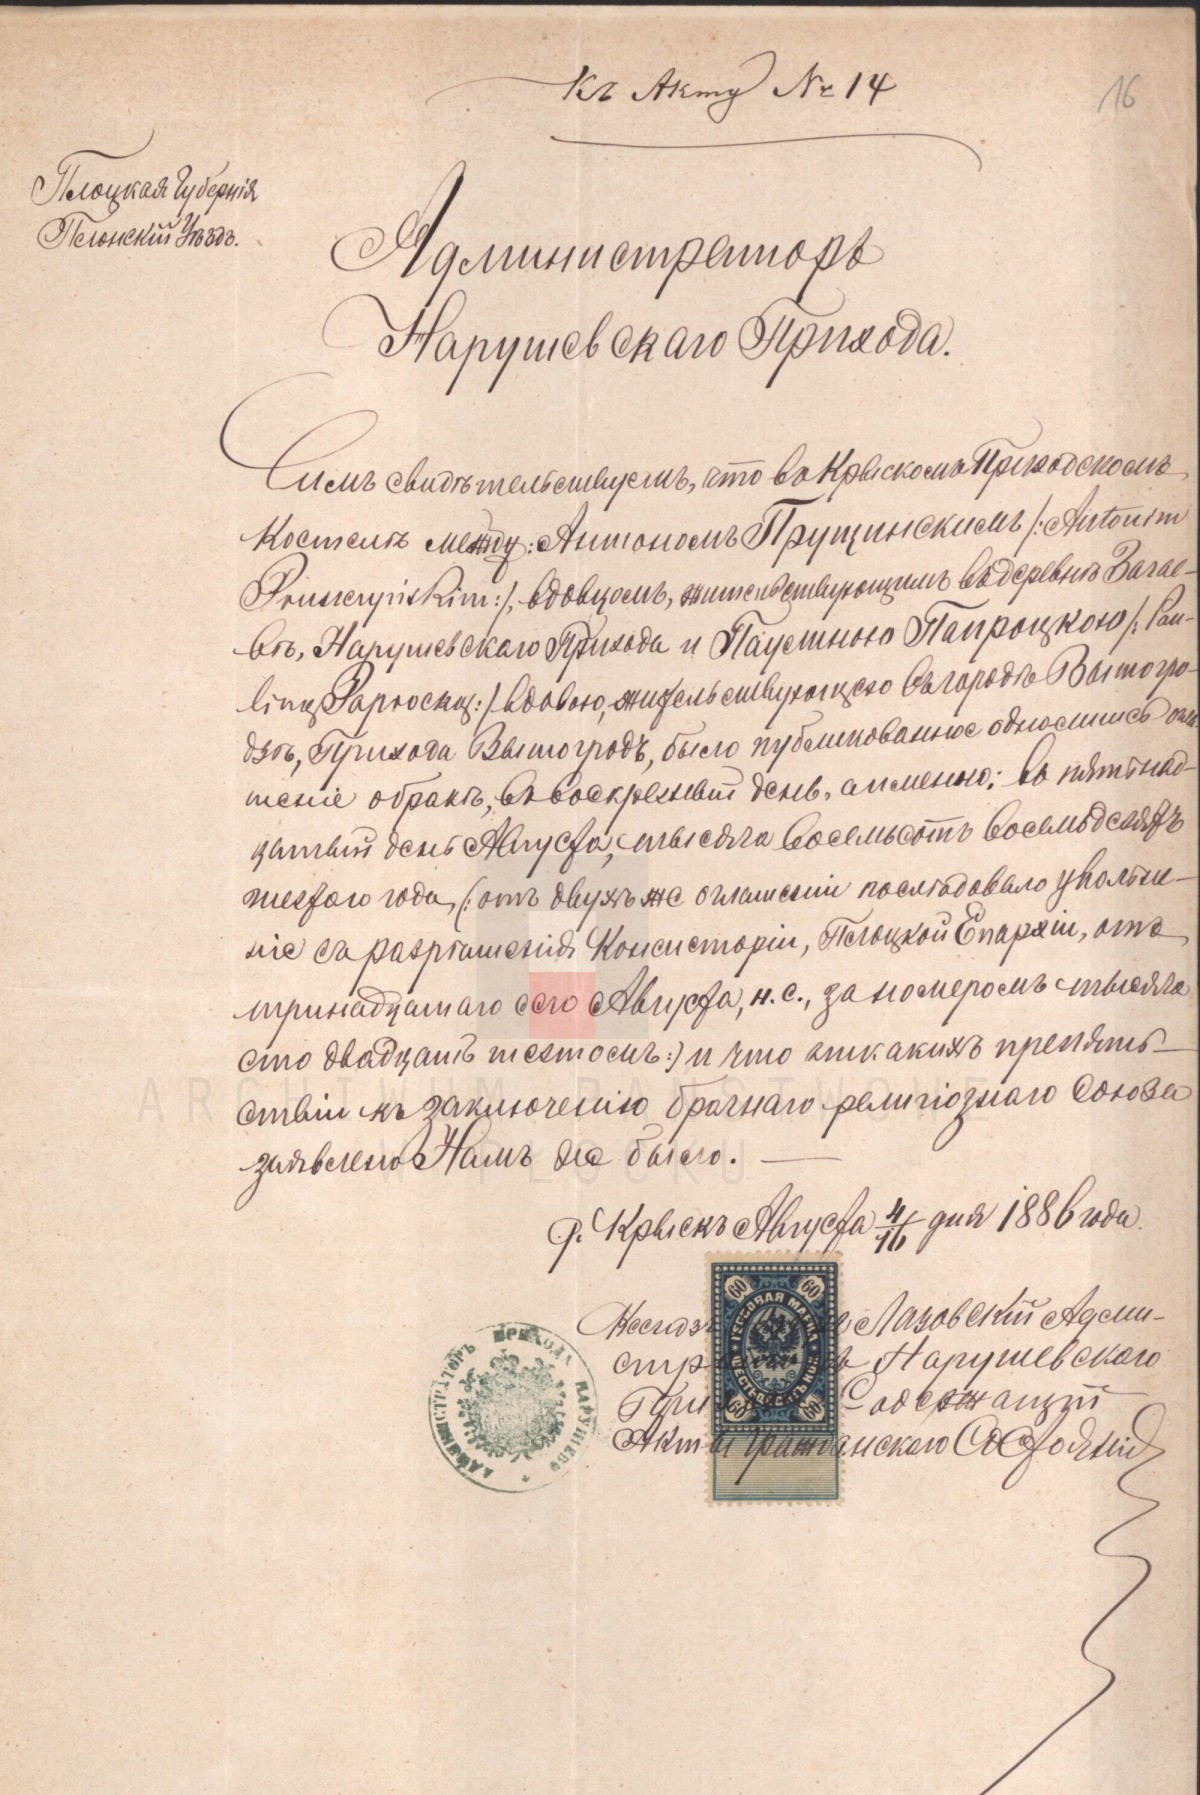 Къ Акту № 14
16
Плоцкая Губернія
Плонскій Уѣздъ.
Администраторъ
Нарушевскаго Прихода.
Симъ свидѣтельствуемъ, что въ Крыскомъ Приходскомъ
Костелѣ между: Антономъ Прущинскимъ /: Antonim
Pruszczyńskim :/, вдовцомъ, жительствующимъ въ деревнѣ
вѣ, Нарушевскаго Прихода и Паулиною Папроцкою /: Pau-
liną Paprocką :/ вдовою, жительствующею въ городѣ Вышогро-
дѣ, Прихода Вышогродъ, было публикованное однолишь огла
шеніе о бракѣ, въ воскресный день, а именно: въ пятнад-
цатый день Августа, тысяча восемьсотъ восемьдесятъ
шестого года, (: отъ двухъ же оглашеній послѣдовало увольне-
ніе съ разрѣшенія Консисторіи, Плоцкой Епархіи, отъ
тринадцатаго сего Августа, н. с., за номеромъ тысяча
сто двадцать шестомъ :) и что никакихъ препят-
ствій къ заключенію брачнаго религіознаго Союза
заявлено Намъ не было. —
д. Крыскъ Августа 4/16 дня 1886 года.
Ксендзъ Лазовскій Адми-
стр Нарушевскаго
При Содержащій
Акты Гражданскаго Состоянія
60 60
ГЕРБОВАЯ МАРКА
60 60
АДМИНИСТРАТОРЪ ПРИХОДА НАРУШЕВО
ARCHIWUM PAŃSTWOWE
W PŁOCKU